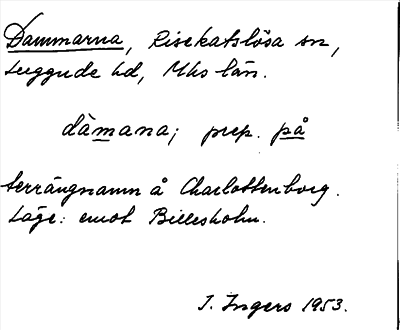 Dammarna, Risekatslösa sn,
Luggude hd, Mhs län.
dàmana; prep. på
terrängnamn å Charlottenborg.
Läge: emot Billesholm.
I. Ingers 1953.